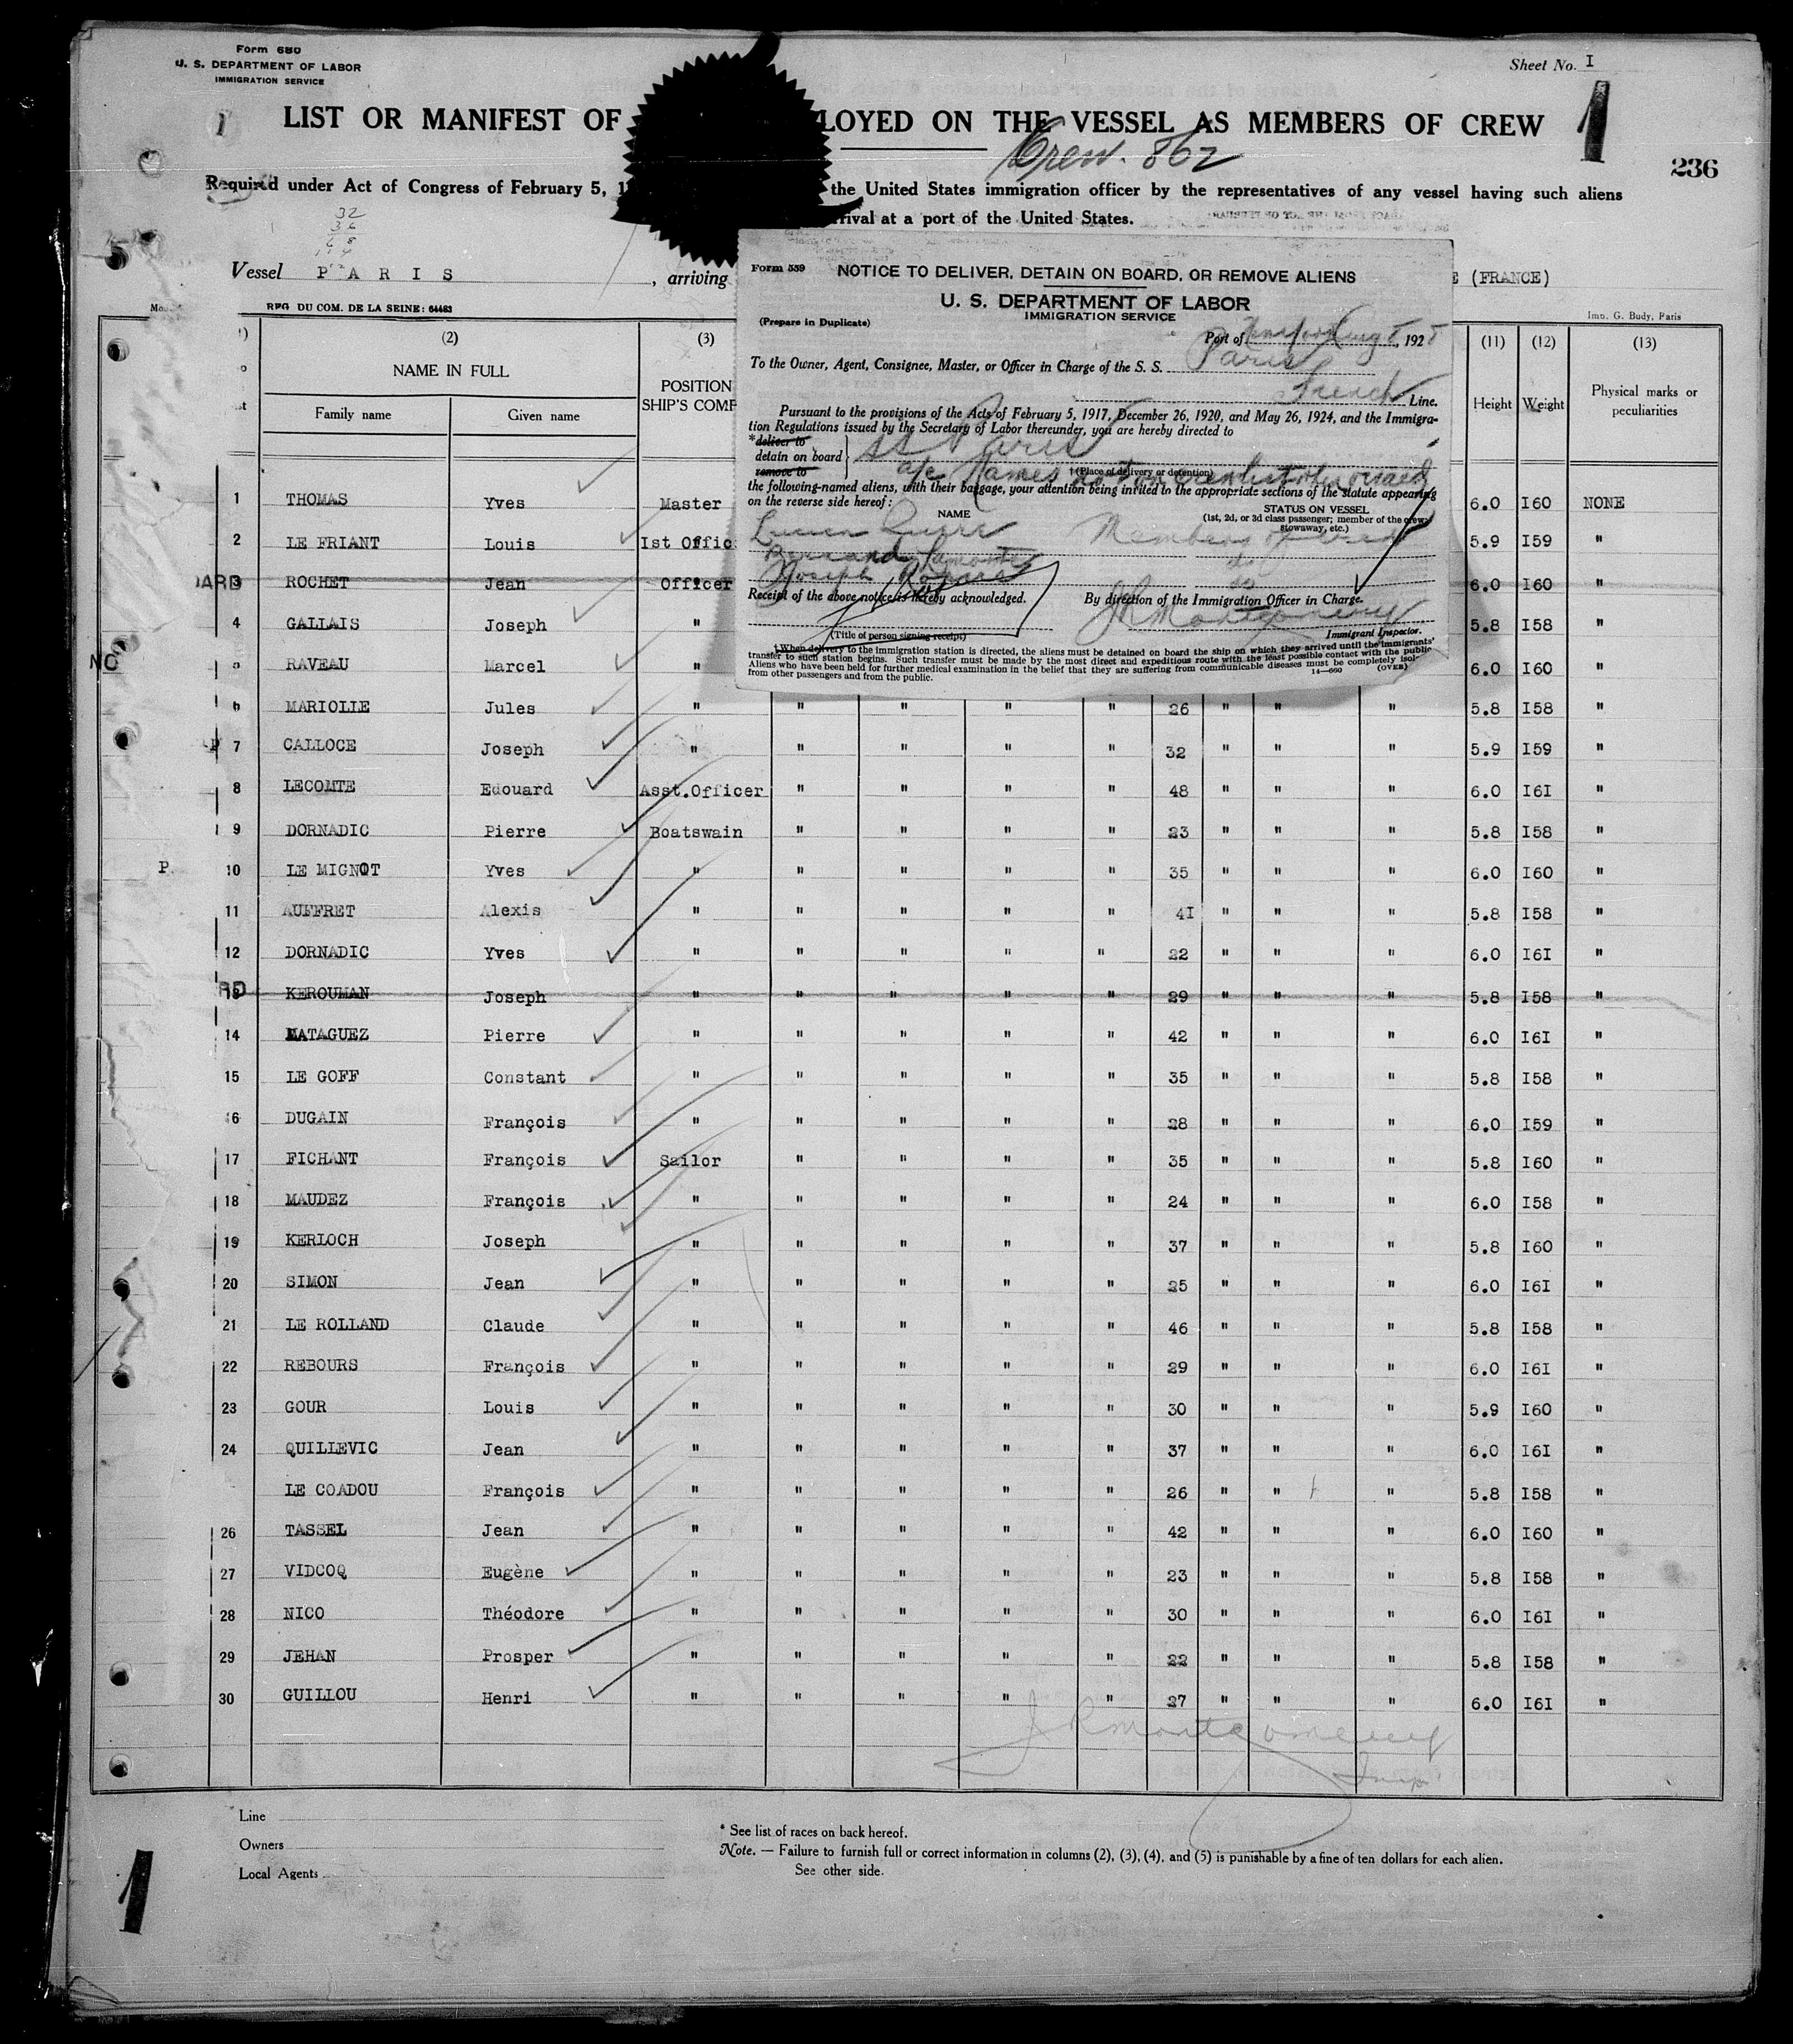 Form 680
U. S. DEPARTMENT OF LABOR
IMMIGRATION SERVICE
Sheet No. I
1
LIST OR MANIFEST OF LOYED ON THE VESSEL AS MEMBERS OF CREW
Crew. 862
236
Required under Act of Congress of February 5, 1 the United States immigration officer by the representatives of any vessel having such aliens
rrival at a port of the United States.
Vessel P A R I S , arriving E (FRANCE)
RFG DU COM. DE LA SEINE: 64483
Imp. G. Budy, Paris
Form 559
NOTICE TO DELIVER, DETAIN ON BOARD, OR REMOVE ALIENS
U. S. DEPARTMENT OF LABOR
IMMIGRATION SERVICE
(Prepare in Duplicate)
Port of Aug 8, 1928
To the Owner, Agent, Consignee, Master, or Officer in Charge of the S. S. Paris
French Line.
Pursuant to the provisions of the Acts of February 5, 1917, December 26, 1920, and May 26, 1924, and the Immigra-
tion Regulations issued by the Secretary of Labor thereunder, you are hereby directed to
*deliver to
detain on board
remove to
SS Paris
†(Place of delivery or detention)
a/c Names not on crew list
the following-named aliens, with their baggage, your attention being invited to the appropriate sections of the statute appearing
on the reverse side hereof:
NAME
STATUS ON VESSEL
(1st, 2d, or 3d class passenger; member of the crew;
stowaway, etc.)
Lucien Members of Crew
Bertrand do
Joseph do
Receipt of the above notice is hereby acknowledged.
By direction of the Immigration Officer in Charge.
J R Montgomery
(Title of person signing receipt)
Immigrant Inspector.
† When delivery to the immigration station is directed, the aliens must be detained on board the ship on which they arrived until the immigrants'
transfer to such station begins. Such transfer must be made by the most direct and expeditious route with the least possible contact with the public
Aliens who have been held for further medical examination in the belief that they are suffering from communicable diseases must be completely isol-
from other passengers and from the public.
14—660
(OVER)
(2) (3) (11) (12) (13)
NAME IN FULL
Family name Given name
POSITION
SHIP'S COMP
Height Weight Physical marks or
peculiarities
1 THOMAS Yves Master 6.0 I60 NONE
2 LE FRIANT Louis Ist Offic 5.9 I59 "
3 ROCHET Jean Officer 6.0 I60 "
4 GALLAIS Joseph " 5.8 I58 "
5 RAVEAU Marcel " 6.0 I60 "
6 MARIOLLE Jules " " " " " 26 " " " 5.8 I58 "
7 CALLOCE Joseph " " " " " 32 " " " 5.9 I59 "
8 LECOMTE Edouard Asst.Officer " " " " 48 " " " 6.0 I6I "
9 DORNADIC Pierre Boatswain " " " " 23 " " " 5.8 I58 "
10 LE MIGNOT Yves " " " " " 35 " " " 6.0 I60 "
11 AUFFRET Alexis " " " " " 4I " " " 5.8 I58 "
12 DORNADIC Yves " " " " " 22 " " " 6.0 I6I "
13 KEROUMAN Joseph " " " " " 29 " " " 5.8 I58 "
14 MATAGUEZ Pierre " " " " " 42 " " " 6.0 I6I "
15 LE GOFF Constant " " " " " 35 " " " 5.8 I58 "
16 DUGAIN François " " " " " 28 " " " 6.0 I59 "
17 FICHANT François Sailor " " " " 35 " " " 5.8 I60 "
18 MAUDEZ François " " " " " 24 " " " 6.0 I58 "
19 KERLOCH Joseph " " " " " 37 " " " 5.8 I60 "
20 SIMON Jean " " " " " 25 " " " 6.0 I6I "
21 LE ROLLAND Claude " " " " " 46 " " " 5.8 I58 "
22 REBOURS François " " " " " 29 " " " 6.0 I6I "
23 GOUR Louis " " " " " 30 " " " 5.9 I60 "
24 QUILLEVIC Jean " " " " " 37 " " " 6.0 I6I "
LE COADOU François " " " " " 26 " " " 5.8 I58 "
26 TASSEL Jean " " " " " 42 " " " 6.0 I60 "
27 VIDCOQ Eugène " " " " " 23 " " " 5.8 I58 "
28 NICO Théodore " " " " " 30 " " " 6.0 I6I "
29 JEHAN Prosper " " " " " 22 " " " 5.8 I58 "
30 GUILLOU Henri " " " " " 27 " " " 6.0 I6I "
J R Montgomery
Line
Owners
Local Agents
* See list of races on back hereof.
Note. — Failure to furnish full or correct information in columns (2), (3), (4), and (5) is punishable by a fine of ten dollars for each alien.
See other side.
1